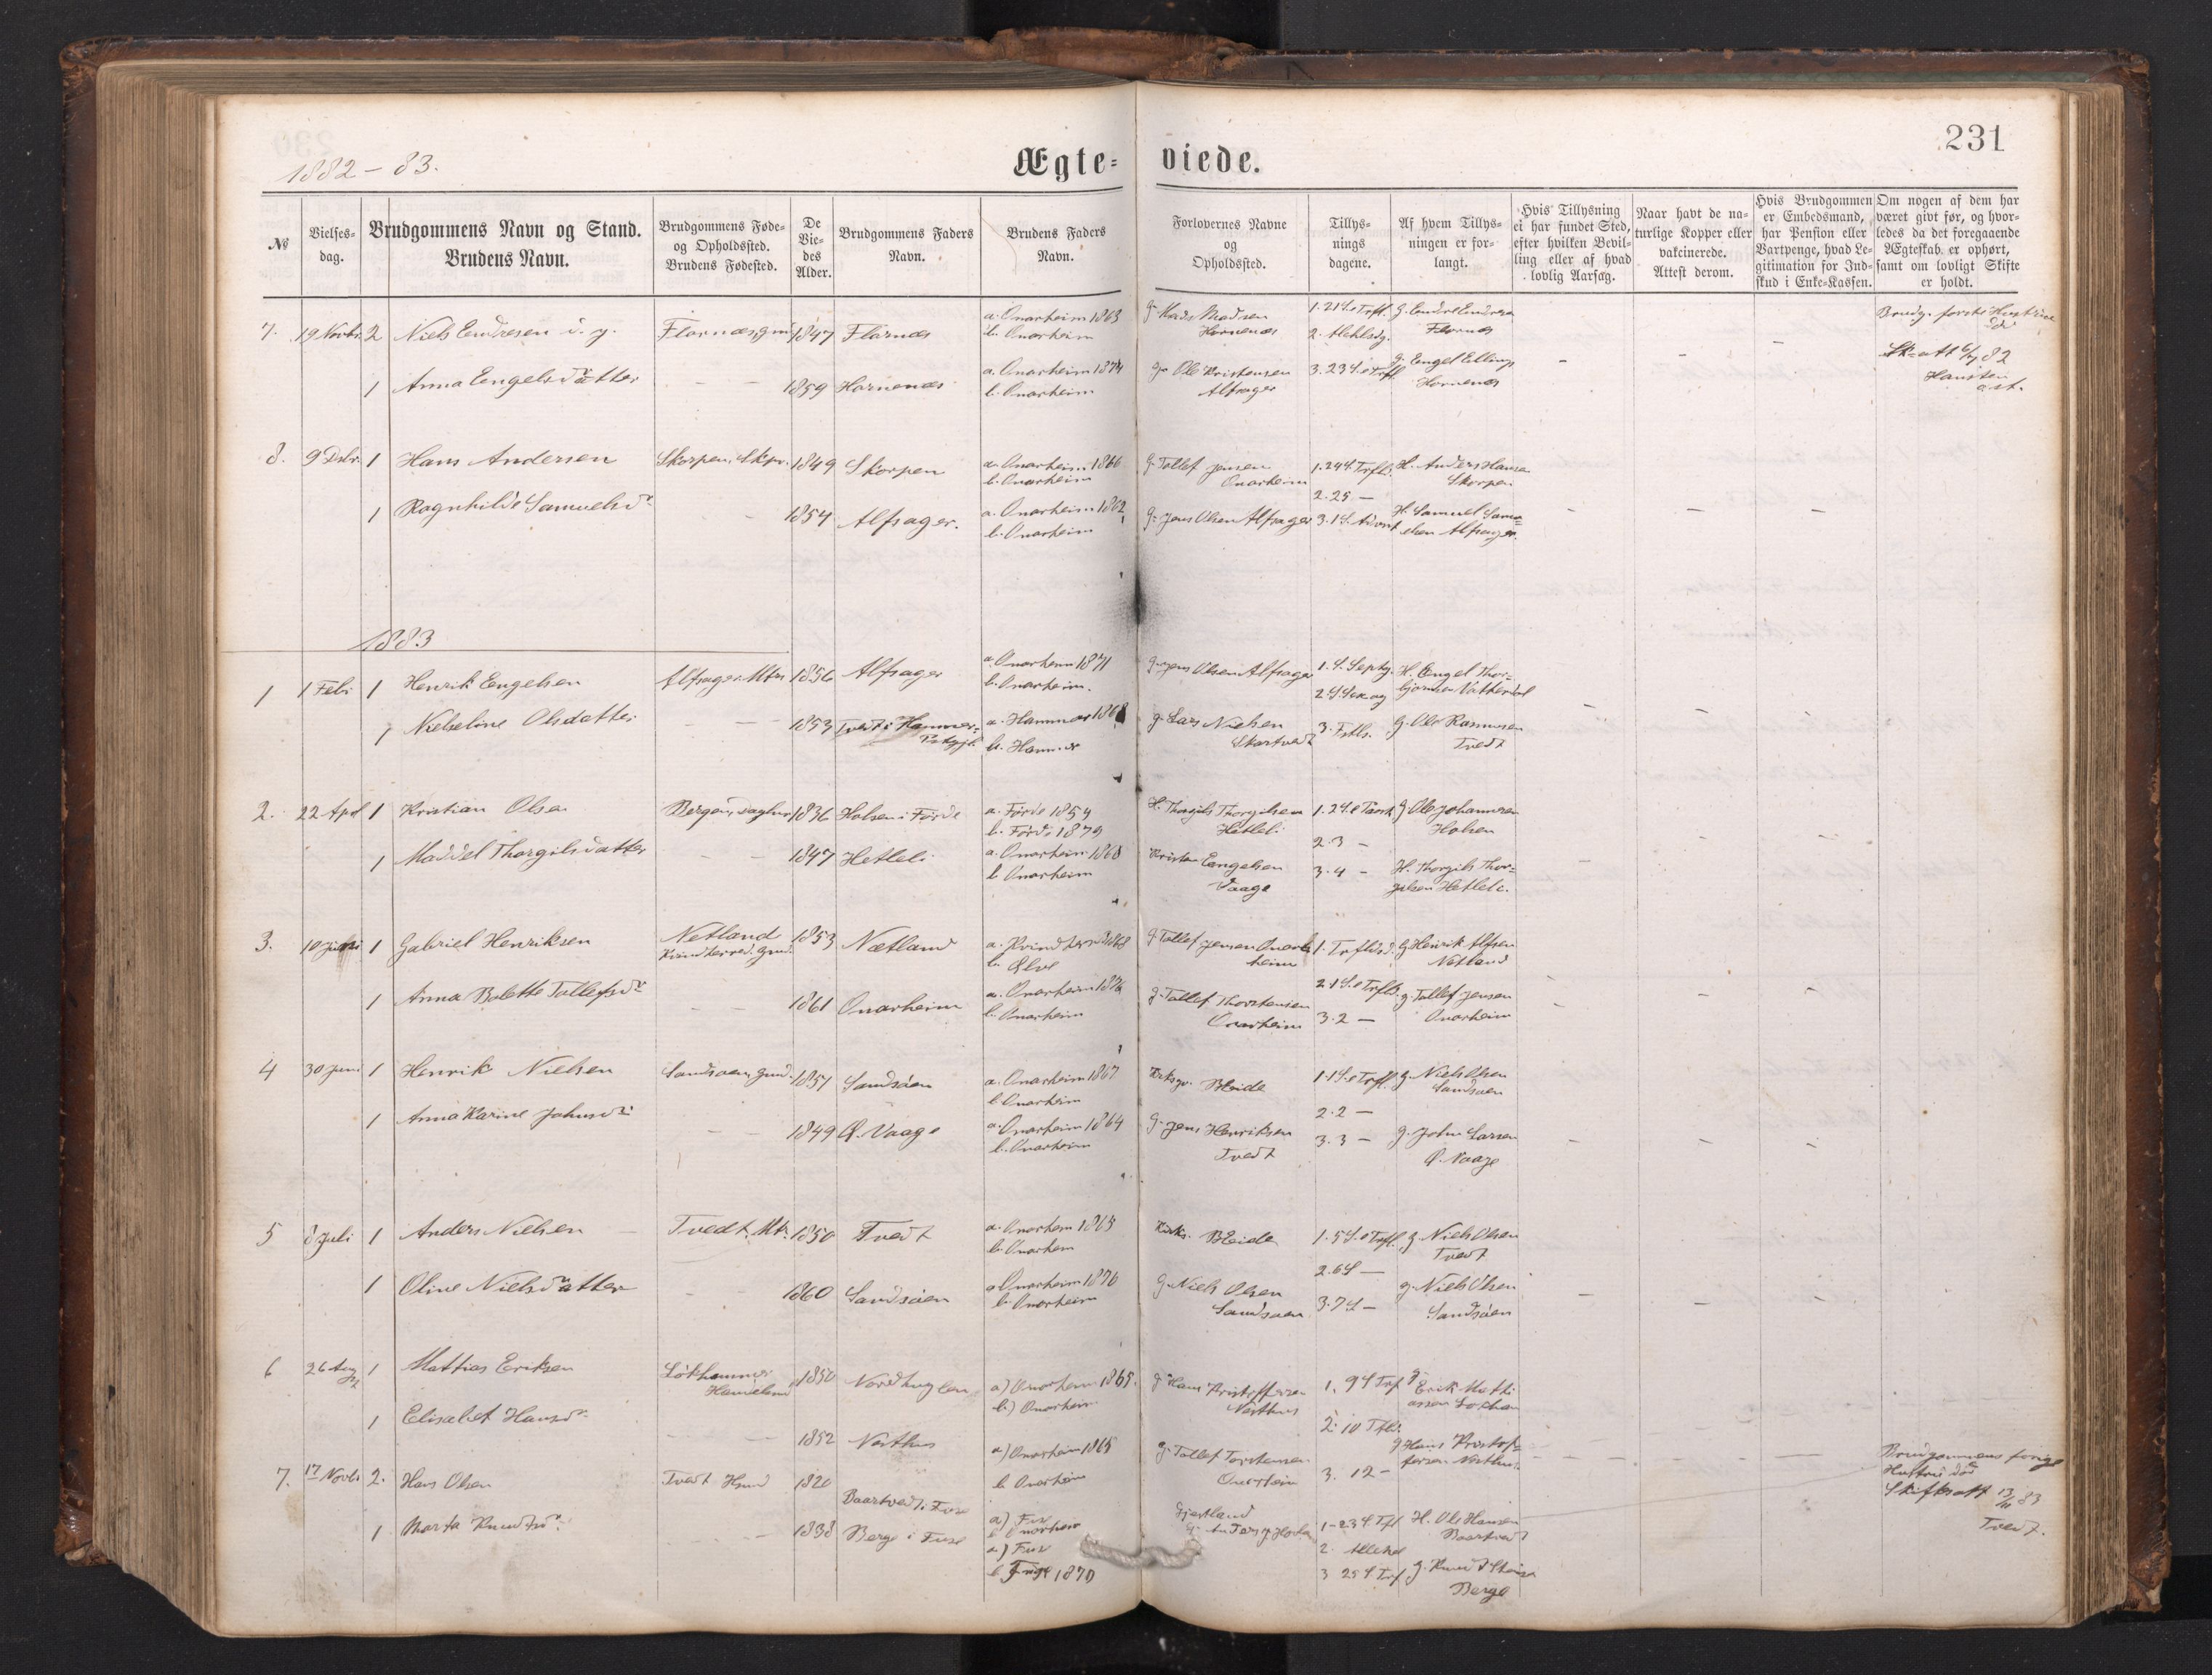 231
1882 - 83.
Ægte-
viede.
№
Vielses-
dag.
Brudgommens Navn og Stand.
Brudens Navn.
Brudgommens Føde-
og Opholdssted.
Brudens Fødested.
De
Vie-
des
Alder.
Brudgommens Faders
Navn.
Brudens Faders
Navn.
Forlovernes Navne
og
Opholdssted.
Tillys-
nings
dagene.
Af hvem Tillys-
ningen er for-
langt.
Hvis Tillysning
ei har fundet Sted,
efter hvilken Bevil-
ling eller af hvad
lovlig Aarsag.
Naar havt de na-
turlige Kopper eller
vakcinerede.
Attest derom.
Hvis Brudgommen
er Embedsmand,
har Pension eller
Vartpenge, hvad Le-
gitimation for Ind-
skud i Enke-Kassen.
Om nogen af dem har
været givt før, og hvor-
ledes da det foregaaende
Ægteskab er ophørt,
samt om lovligt Skifte
er holdt.
7. 19 Novbr. 2 Niels Endresen d. y. Flornæs, gm 1847 Flornæs
a. Onarheim 1863
b. Onarheim
g. Mads Madsen
Hornenæs
g. Endre Endresen
Flornæs
1 Anna Engelsdatter - - 1859 Hornenæs
a. Onarheim 1874
b. Onarheim
g. Ole Kristensen
Alfsager
g. Engel Ellings
Hornenæs
8. 9 Dcbr. 1 Hans Andersen Skorpen, Skpr. 1849 Skorpen
a. Onarheim 1866
b. Onarheim
g. Tollef Jensen
Onarheim
1. 24 S. Trflt.
2. 25 -
H. Anders Hansen
Skorpen
1 Ragnhilde Samuelsdr - 1854 Alfsager.
a. Onarheim 1862
b. Onarheim
g. Jens Olsen Alfsager
3. 1 S. Advent
H. Samuel Samu=
elsen Alfsager.
1883
1 1 Feb. 1 Henrik Engelsen Alfsager Mtr. 1856 Alfsager
a. Onarheim 1871
b. Onarheim.
g. Jens Olsen Alfsager
1. S. Septg.
2. S. Sexag
H. Engel Thor=
bjørnsen
1 Nielseline Olsdatter - - 1853 Tvedt i Hammer=
Prstgjl.
a. Hammer 1868
b. Hammer
g. Lars Nielsen
3. Fstls.
g. Ole Rasmusen
Tvedt
2. 22 Apr 1 Kristian Olsen Bergen, 1836 Holsen i Førde
a. Førde 1854
b. Førde 1879
H. Thorgils Thorgilsen
Hetleli
1. 2 S. e Paask
2. 3 -
g. Ole Johannesen
Holsen
1 Maddel Thorgilsdatter - - 1847 Hetleli
a. Onarheim 1863
b. Onarheim
Kristen Engelsen
Vaage
3. 4 -
H. Thorgils Thor=
gilsen Hetleli.
3. 10 Juni 1 Gabriel Henriksen Netland
Kvindherred. Gmd. 1853 Netland
a. Kvindherred 1868
b. Ølve
g. Tollef Jensen Onar
heim
1. Trflds.
g. Henrik Alfsen
Netland
1 Anna Bolette Tollefsdr - - 1861 Onarheim
a. Onarheim 1876
b. Onarheim
g. Tollef Thorstensen
Onarheim
2. 1 S. e Trflt.
3. 2 -
g. Tollef Jensen
Onarheim
4 30 Juni 1 Henrik Nielsen Sandsøen, gmd. 1857 Sandsøen
a. Onarheim 1867
b. Onarheim
Kirksgr. Bleide
1. 1 S. e Trfl.
2. 2 -
g. Niels Olsen
Sandsøen
1 Anna Karine Johnsdr - - 1849 Ø. Vaage
a. Onarheim 1864
b. Onarheim
g. Jens Henriksen
Tvedt
3. 3 -
g. John Larsen
Ø. Vaage
5 8 Juli 1 Anders Nielsen Tvedt, Mtr. 1850 Tvedt
a. Onarheim 1865
b. Onarheim
Kirks. Bleide
1. 5 S. e Trfl.
2. 6 S -
g. Niels Olsen
Tvedt
1 Oline Nielsdatter - - 1860 Sandsøen
a. Onarheim 1876
b. Onarheim
g. Niels Olsen
Sandsøen
3. 7 S -
g. Niels Olsen
Sandsøen
6 26 Aug 1 Mattias Eriksen Løkhammer
1850 Nordhuglen
a) Onarheim 1865.
b.) Onarheim
g Hans Kristoffersen
Nesthus
1. 9 S Trf
2. 10 Trfl.
g Erik Matti
assen
1 Elisabet Hansdr. - - 1852 Nesthus
a) Onarheim 1865
b Onarheim
g. Tollef Torstensen
Onarheim
3. 12 -
g Hans Kristof=
fersen Nesthus
7. 17 Novbr 2. Hans Olsen Tvedt Hsmd 1820
Baartvedt i Fuse
a) Fuse
b Onarheim
Gjestland
1 - 23 S. Trfl
H. Ole Hansen
Baartvedt
1 Marta Knudtsdr. - - 1838 Berge i Fuse
a) Fuse
b Fuse 1870
3 25 S Trf
Berge
Brudg. første Hustru
død
Sk=att 6/7 82
Brudgommens forrige
Hustru død
Skifteatt 13/11 83
Tvedt.